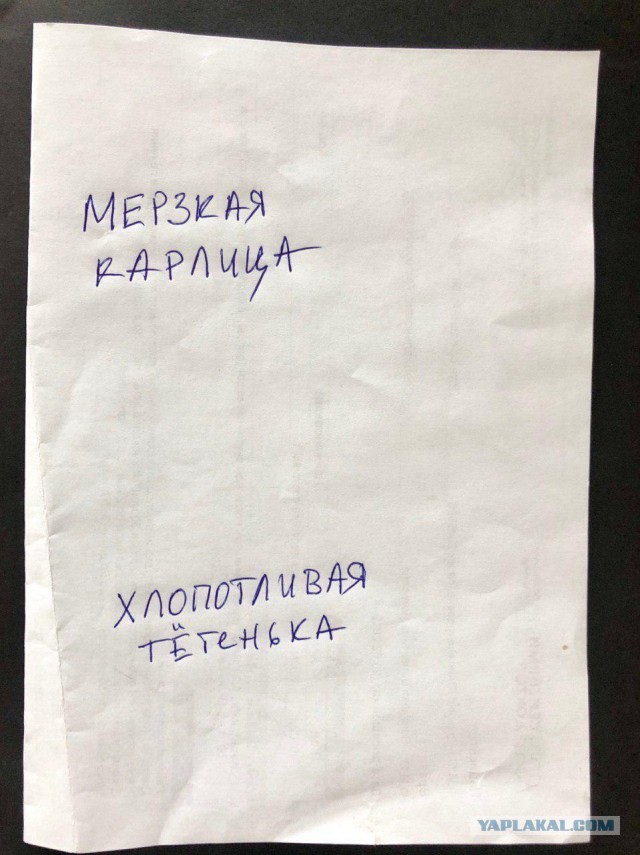 МЕРЗКАЯ
КАРЛИЦА
ХЛОПОТЛИВАЯ
ТЁТЕНЬКА
YAPLAKAL.COM